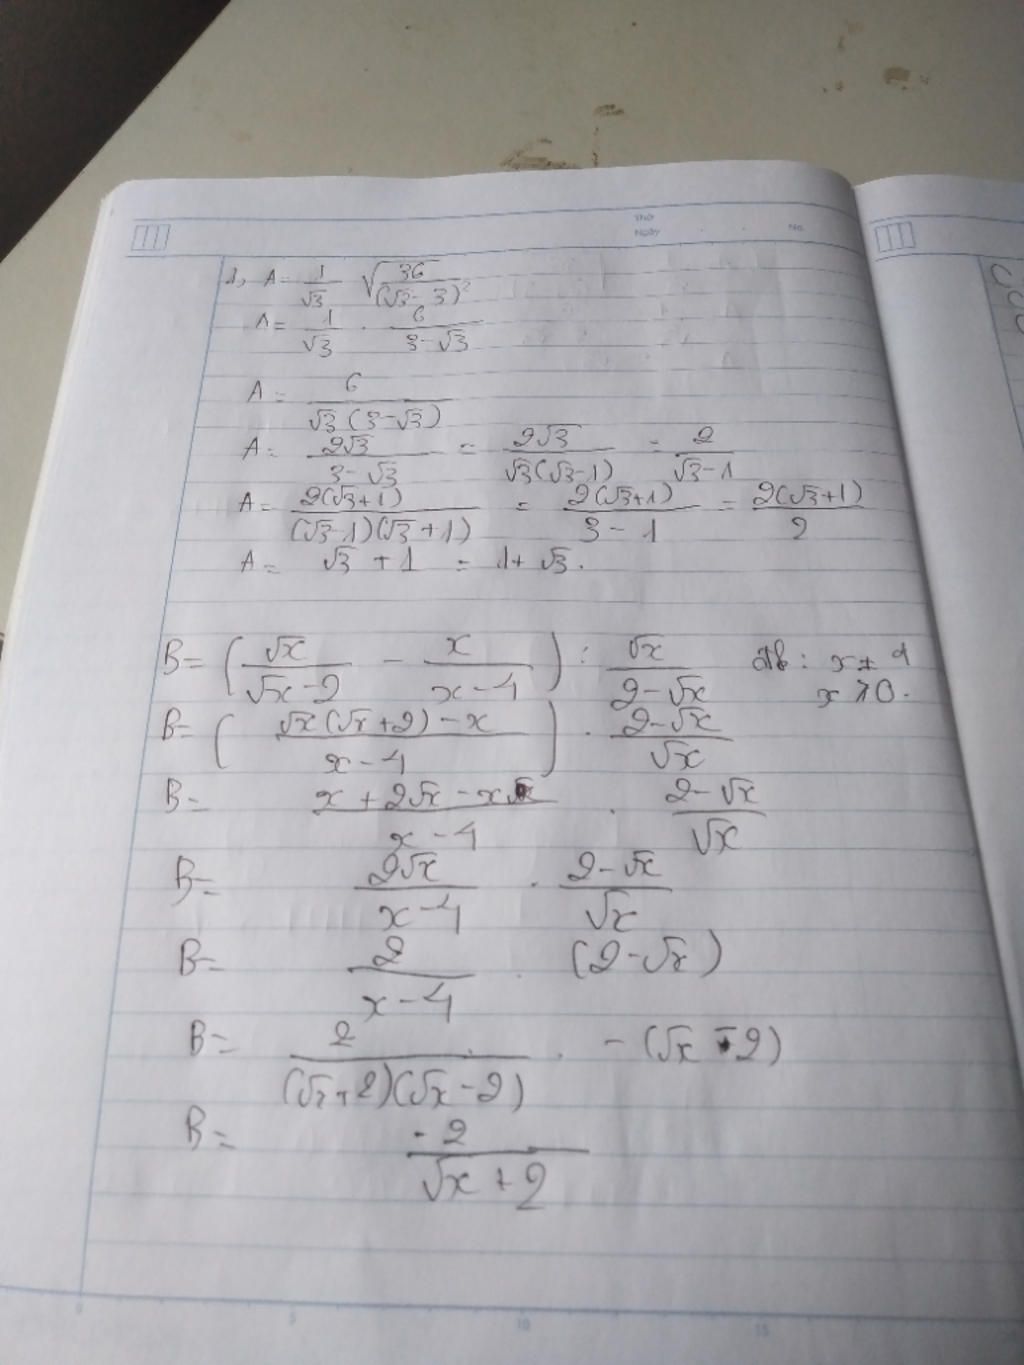 Thứ
Ngày No.
1, A = 1/√3 √(36/(√3 - 3)²)
A = 1/√3 . 6/(3-√3)
A = 6/(√3(3-√3))
A = 2√3/(3-√3) = 2√3/(√3(√3-1)) = 2/(√3-1)
A = 2(√3+1)/((√3-1)(√3+1)) = 2(√3+1)/(3-1) = 2(√3+1)/2
A = √3 + 1 = 1+ √3.
B = (√x/(√x-2) - x/(x-4)) : √x/(2-√x) x ≠ 4
x > 0.
B = ((√x(√x+2) - x)/(x-4)) . (2-√x)/√x
B = (x + 2√x - x)/(x-4) . (2-√x)/√x
B = 2√x/(x-4) . (2-√x)/√x
B = 2/(x-4) . (2-√x)
B = 2/((√x+2)(√x-2)) . -(√x - 2)
B = -2/(√x+2)
0 5 10 15